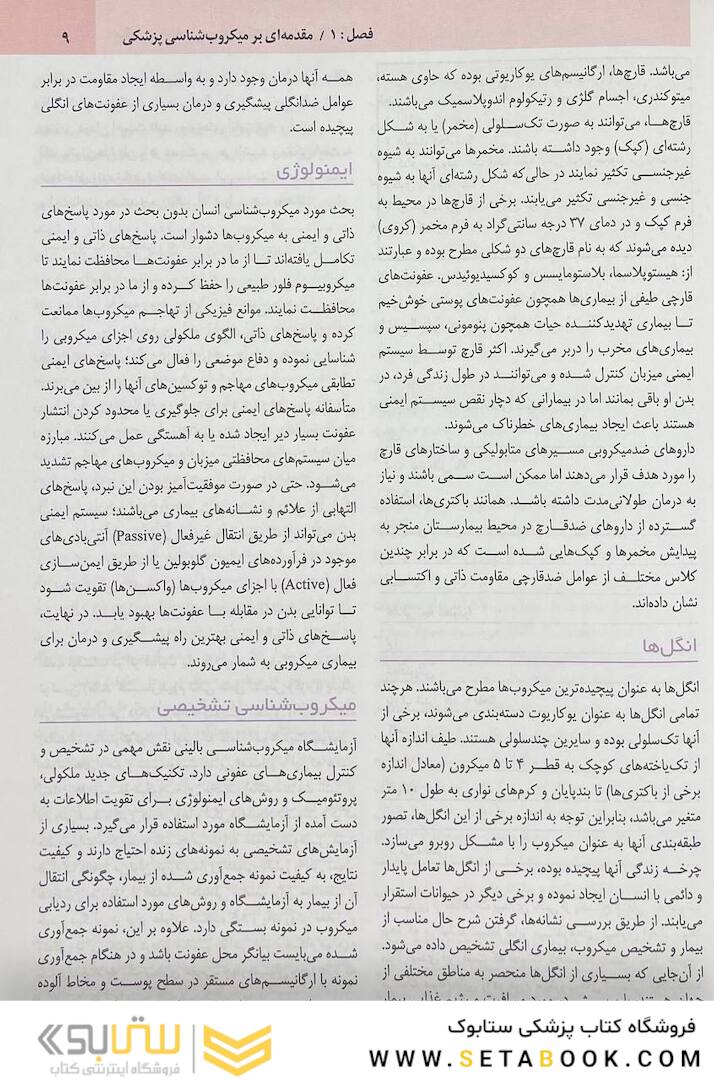 فصل: ۱ / مقدمه‌ای بر میکروب‌شناسی پزشکی
۹
می‌باشد. قارچ‌ها، ارگانیسم‌های یوکاریوتی بوده که حاوی هسته،
میتوکندری، اجسام گلژی و رتیکولوم اندوپلاسمیک می‌باشند.
قارچ‌ها، می‌توانند به صورت تک‌سلولی (مخمر) یا به شکل
رشته‌ای (کپک) وجود داشته باشند. مخمرها می‌توانند به شیوه
غیرجنسی تکثیر نمایند در حالی‌که شکل رشته‌ای آنها به شیوه
جنسی و غیرجنسی تکثیر می‌یابند. برخی از قارچ‌ها در محیط به
فرم کپک و در دمای ۳۷ درجه سانتی‌گراد به فرم مخمر (کروی)
دیده می‌شوند که به نام قارچ‌های دو شکلی مطرح بوده و عبارتند
از: هیستوپلاسما، بلاستومایسس و کوکسیدیوئیدس. عفونت‌های
قارچی طیفی از بیماری‌ها همچون عفونت‌های پوستی خوش‌خیم
تا بیماری تهدیدکننده حیات همچون پنومونی، سپسیس و
بیماری‌های مخرب را دربر می‌گیرند. اکثر قارچ توسط سیستم
ایمنی میزبان کنترل شده و می‌توانند در طول زندگی فرد، در
بدن او باقی بمانند اما در بیمارانی که دچار نقص سیستم ایمنی
هستند باعث ایجاد بیماری‌های خطرناک می‌شوند.
داروهای ضدمیکروبی مسیرهای متابولیکی و ساختارهای قارچ
را مورد هدف قرار می‌دهند اما ممکن است سمی باشند و نیاز
به درمان طولانی‌مدت داشته باشد. همانند باکتری‌ها، استفاده
گسترده از داروهای ضدقارچ در محیط بیمارستان منجر به
پیدایش مخمرها و کپک‌هایی شده است که در برابر چندین
کلاس مختلف از عوامل ضدقارچی مقاومت ذاتی و اکتسابی
نشان داده‌اند.
انگل‌ها
انگل‌ها به عنوان پیچیده‌ترین میکروب‌ها مطرح می‌باشند. هرچند
تمامی انگل‌ها به عنوان یوکاریوت دسته‌بندی می‌شوند، برخی از
آنها تک‌سلولی بوده و سایرین چندسلولی هستند. طیف اندازه آنها
از تک‌یاخته‌های کوچک به قطر ۴ تا ۵ میکرون (معادل اندازه
برخی از باکتری‌ها) تا بندپایان و کرم‌های نواری به طول ۱۰ متر
متغیر می‌باشد، بنابراین توجه به اندازه برخی از این انگل‌ها، تصور
طبقه‌بندی آنها به عنوان میکروب را با مشکل روبرو می‌سازد.
چرخه زندگی آنها پیچیده بوده، برخی از انگل‌ها تعامل پایدار
و دائمی با انسان ایجاد نموده و برخی دیگر در حیوانات استقرار
می‌یابند. از طریق بررسی نشانه‌ها، گرفتن شرح حال مناسب از
بیمار و تشخیص میکروب، بیماری انگلی تشخیص داده می‌شود.
از آن‌جایی که بسیاری از انگل‌ها منحصر به مناطق مختلفی از
همه آنها درمان وجود دارد و به واسطه ایجاد مقاومت در برابر
عوامل ضدانگلی پیشگیری و درمان بسیاری از عفونت‌های انگلی
پیچیده است.
ایمنولوژی
بحث مورد میکروب‌شناسی انسان بدون بحث در مورد پاسخ‌های
ذاتی و ایمنی به میکروب‌ها دشوار است. پاسخ‌های ذاتی و ایمنی
تکامل یافته‌اند تا از ما در برابر عفونت‌ها محافظت نمایند تا
میکروبیوم فلور طبیعی را حفظ کرده و از ما در برابر عفونت‌ها
محافظت نمایند. موانع فیزیکی از تهاجم میکروب‌ها ممانعت
کرده و پاسخ‌های ذاتی، الگوی ملکولی روی اجزای میکروبی را
شناسایی نموده و دفاع موضعی را فعال می‌کند؛ پاسخ‌های ایمنی
تطابقی میکروب‌های مهاجم و توکسین‌های آنها را از بین می‌برند.
متأسفانه پاسخ‌های ایمنی برای جلوگیری یا محدود کردن انتشار
عفونت بسیار دیر ایجاد شده یا به آهستگی عمل می‌کنند. مبارزه
میان سیستم‌های محافظتی میزبان و میکروب‌های مهاجم تشدید
می‌شود. حتی در صورت موفقیت‌آمیز بودن این نبرد، پاسخ‌های
التهابی از علائم و نشانه‌های بیماری می‌باشند؛ سیستم ایمنی
بدن می‌تواند از طریق انتقال غیرفعال (Passive) آنتی‌بادی‌های
موجود در فرآورده‌های ایمیون گلوبولین یا از طریق ایمن‌سازی
فعال (Active) با اجزای میکروب‌ها (واکسن‌ها) تقویت شود
تا توانایی بدن در مقابله با عفونت‌ها بهبود یابد. در نهایت،
پاسخ‌های ذاتی و ایمنی بهترین راه پیشگیری و درمان برای
بیماری میکروبی به شمار می‌روند.
میکروب‌شناسی تشخیصی
آزمایشگاه میکروب‌شناسی بالینی نقش مهمی در تشخیص و
کنترل بیماری‌های عفونی دارد. تکنیک‌های جدید ملکولی،
پروتئومیک و روش‌های ایمنولوژی برای تقویت اطلاعات به
دست آمده از آزمایشگاه مورد استفاده قرار می‌گیرد. بسیاری از
آزمایش‌های تشخیصی به نمونه‌های زنده احتیاج دارند و کیفیت
نتایج، به کیفیت نمونه جمع‌آوری شده از بیمار، چگونگی انتقال
آن از بیمار به آزمایشگاه و روش‌های مورد استفاده برای ردیابی
میکروب در نمونه بستگی دارد. علاوه بر این، نمونه جمع‌آوری
شده می‌بایست بیانگر محل عفونت باشد و در هنگام جمع‌آوری
نمونه با ارگانیسم‌های مستقر در سطح پوست و مخاط آلوده
فروشگاه کتاب پزشکی ستابوک
WWW.SETABOOK.COM
ستابوک
فروشگاه اینترنتی کتاب